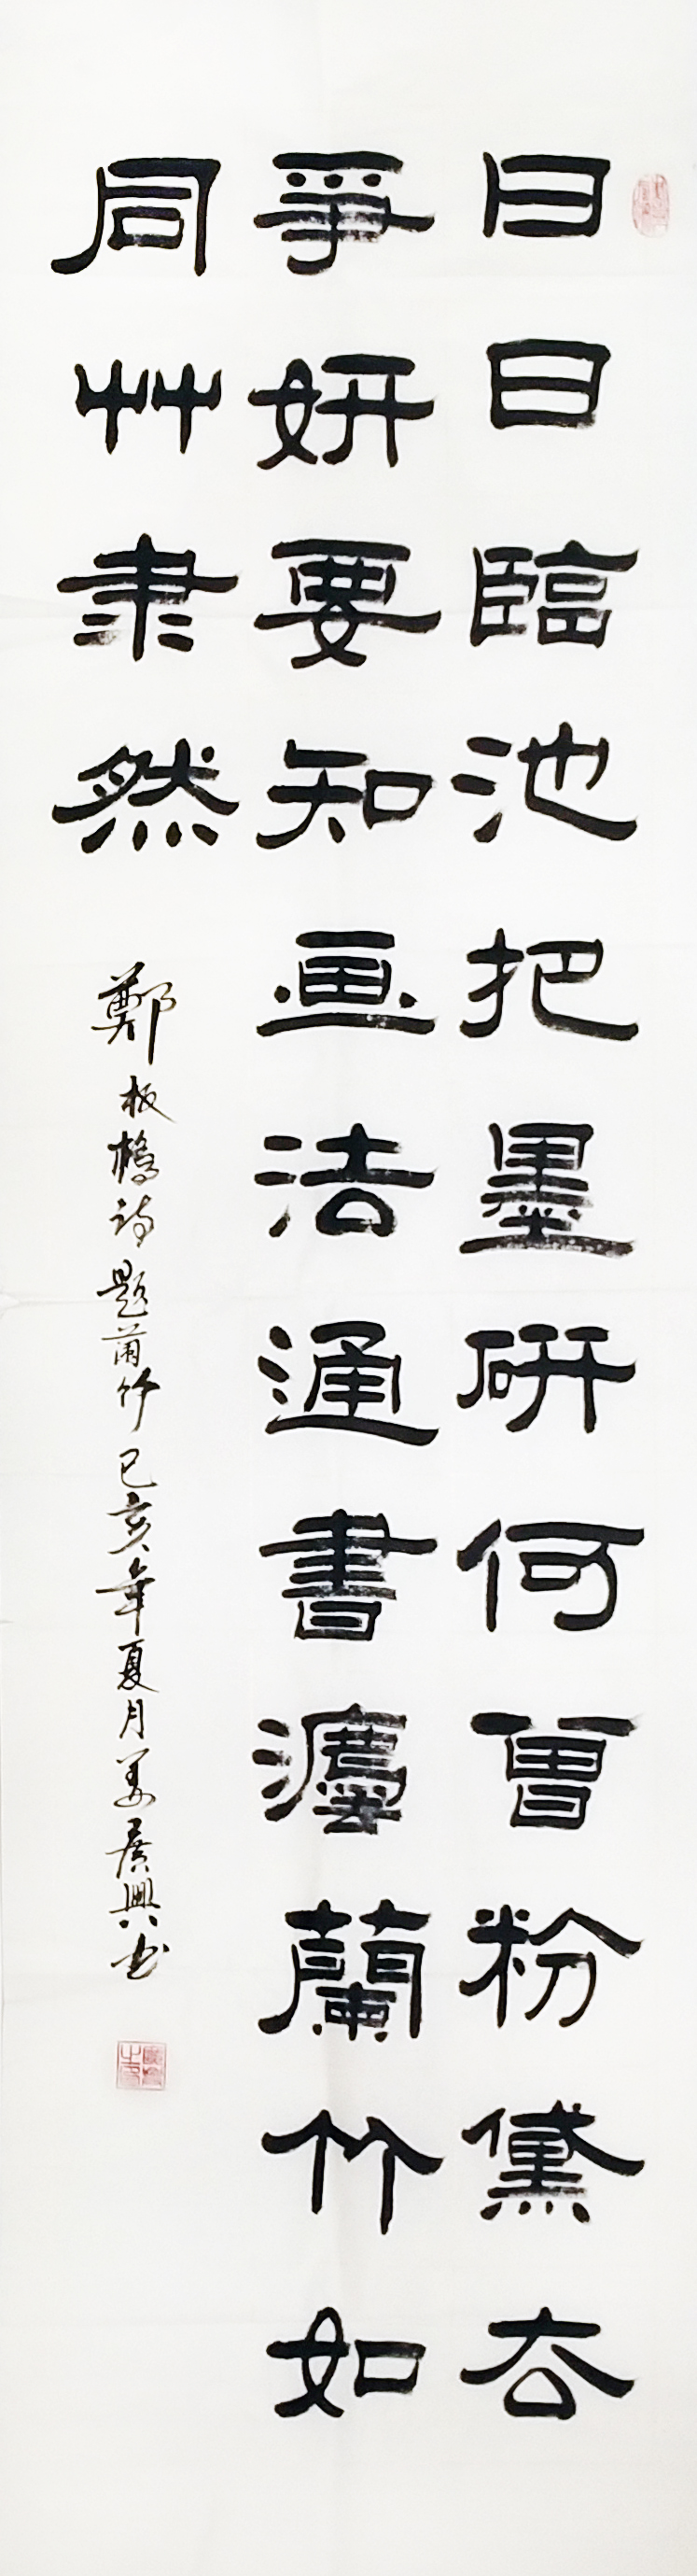 日日臨池把墨研何曾粉黛去
爭妍要知画法通書灋蘭竹如
同艸隶然
鄭板橋詩題蘭竹己亥年夏月姜廣興书